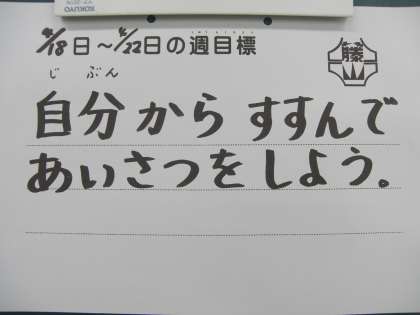 4/18日～4/22日の週目標
じぶん
自分からすすんで
あいさつをしよう。
藤山